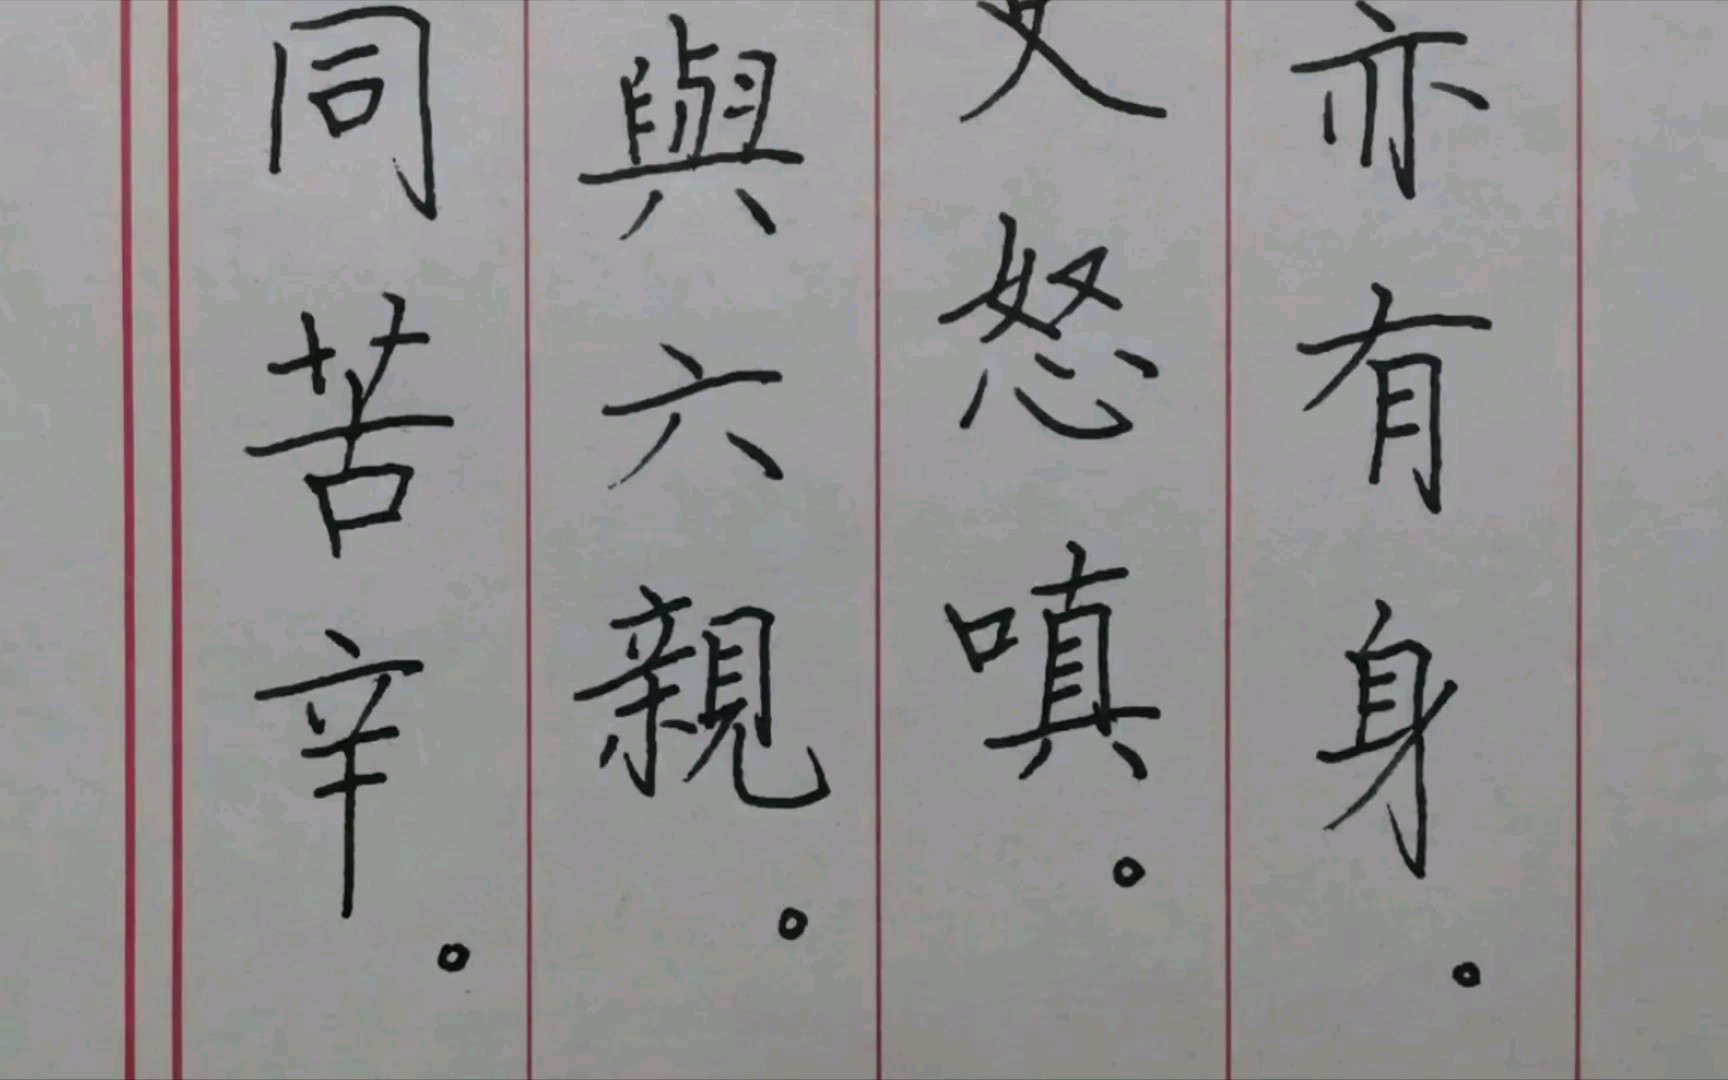 亦有身。
怒嗔。
與六親。
同苦辛。